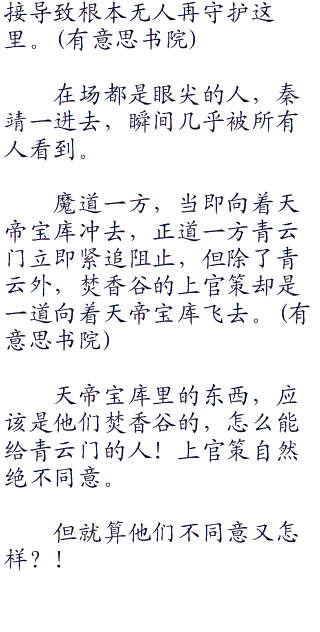 接导致根本无人再守护这
里。(有意思书院)
在场都是眼尖的人，秦
靖一进去，瞬间几乎被所有
人看到。
魔道一方，当即向着天
帝宝库冲去，正道一方青云
门立即紧追阻止，但除了青
云外，焚香谷的上官策却是
一道向着天帝宝库飞去。(有
意思书院)
天帝宝库里的东西，应
该是他们焚香谷的，怎么能
给青云门的人！上官策自然
绝不同意。
但就算他们不同意又怎
样？！